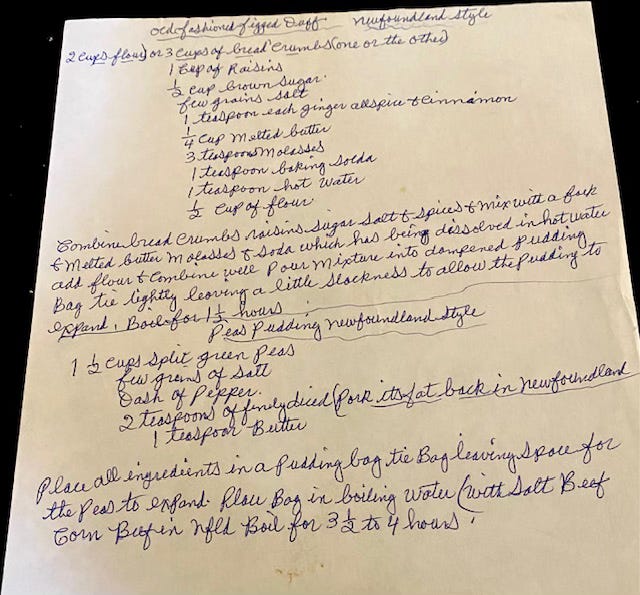 old fashioned figged Duff Newfoundland style
2 cups flour) or 3 cups of bread crumbs (one or the other)
1 Cup of Raisins
1/2 cup brown sugar.
few grains salt
1 teaspoon each ginger allspice & Cinnamon
1/4 Cup Melted butter
3 teaspoons Molasses
1 teaspoon baking soda
1 teaspoon hot Water
1/2 Cup of flour.
Combine bread crumbs raisins sugar salt & spices & Mix with a fork
& Melted butter Molasses & Soda which has being dissolved in hot water
add flour & Combine well Pour Mixture into dampened Pudding
Bag tie lightly leaving a little slackness to allow the pudding to
expand. Boil for 1 1/2 hours
Peas Pudding Newfoundland Style
1 1/2 cups split green Peas
few grains of salt
Dash of Pepper.
2 teaspoons of finely diced (Pork its fat back in Newfoundland
1 teaspoon Butter
Place all ingredients in a Pudding bag tie Bag leaving Space for
the Peas to expand. Place Bag in boiling Water (with Salt Beef
Corn Beef in Nfld Boil for 3 1/2 to 4 hours.